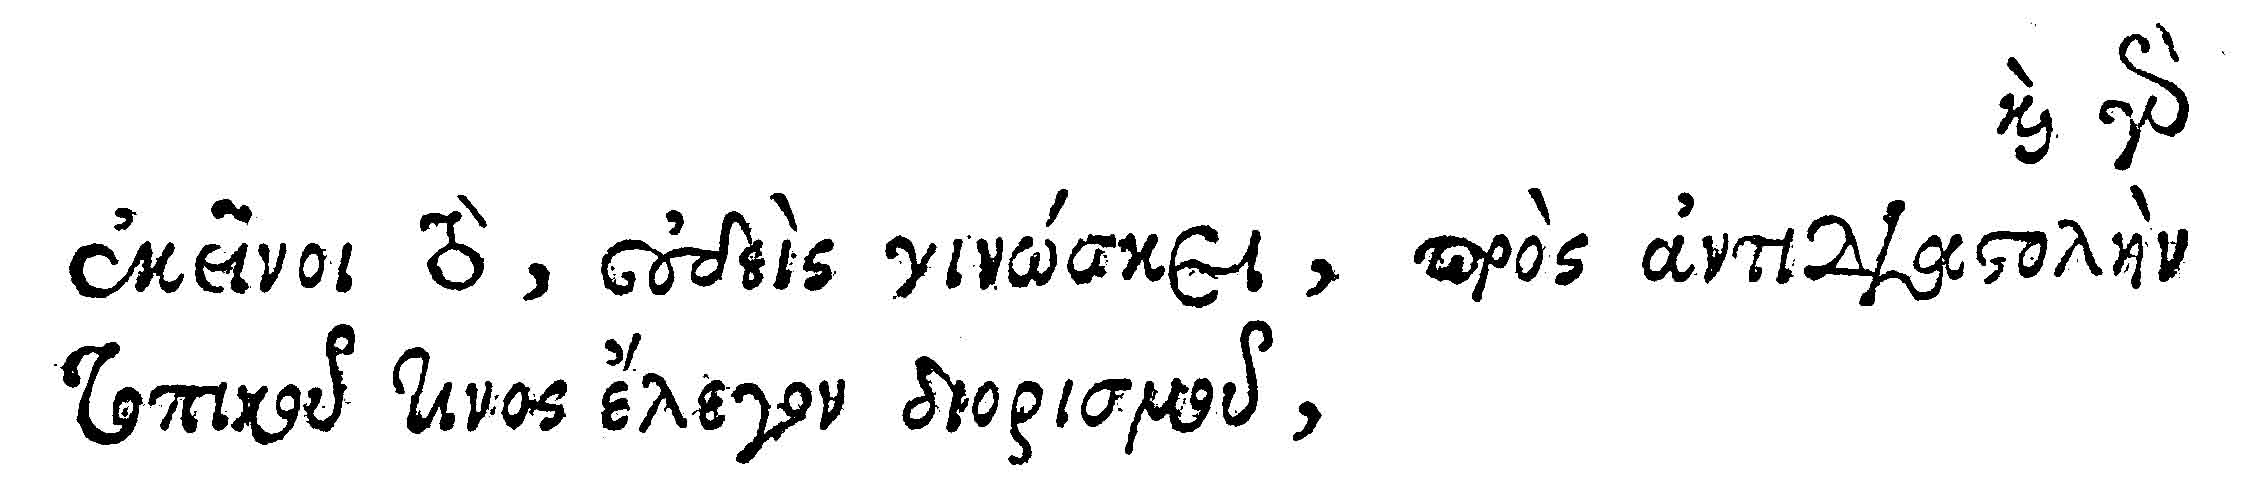 καὶ γὰρ
ἐκεῖνοι τὸ, οὐδεὶς γινώσκει, πρὸς ἀντιδιαστολὴν
τοπικοῦ τινος ἔλεγον διορισμοῦ,